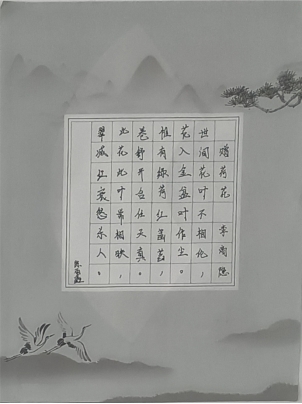 赠荷花 李商隐
世间花叶不相伦，
花入金盆叶作尘。
惟有绿荷红菡萏，
卷舒开合任天真。
此花此叶常相映，
翠减红衰愁杀人。